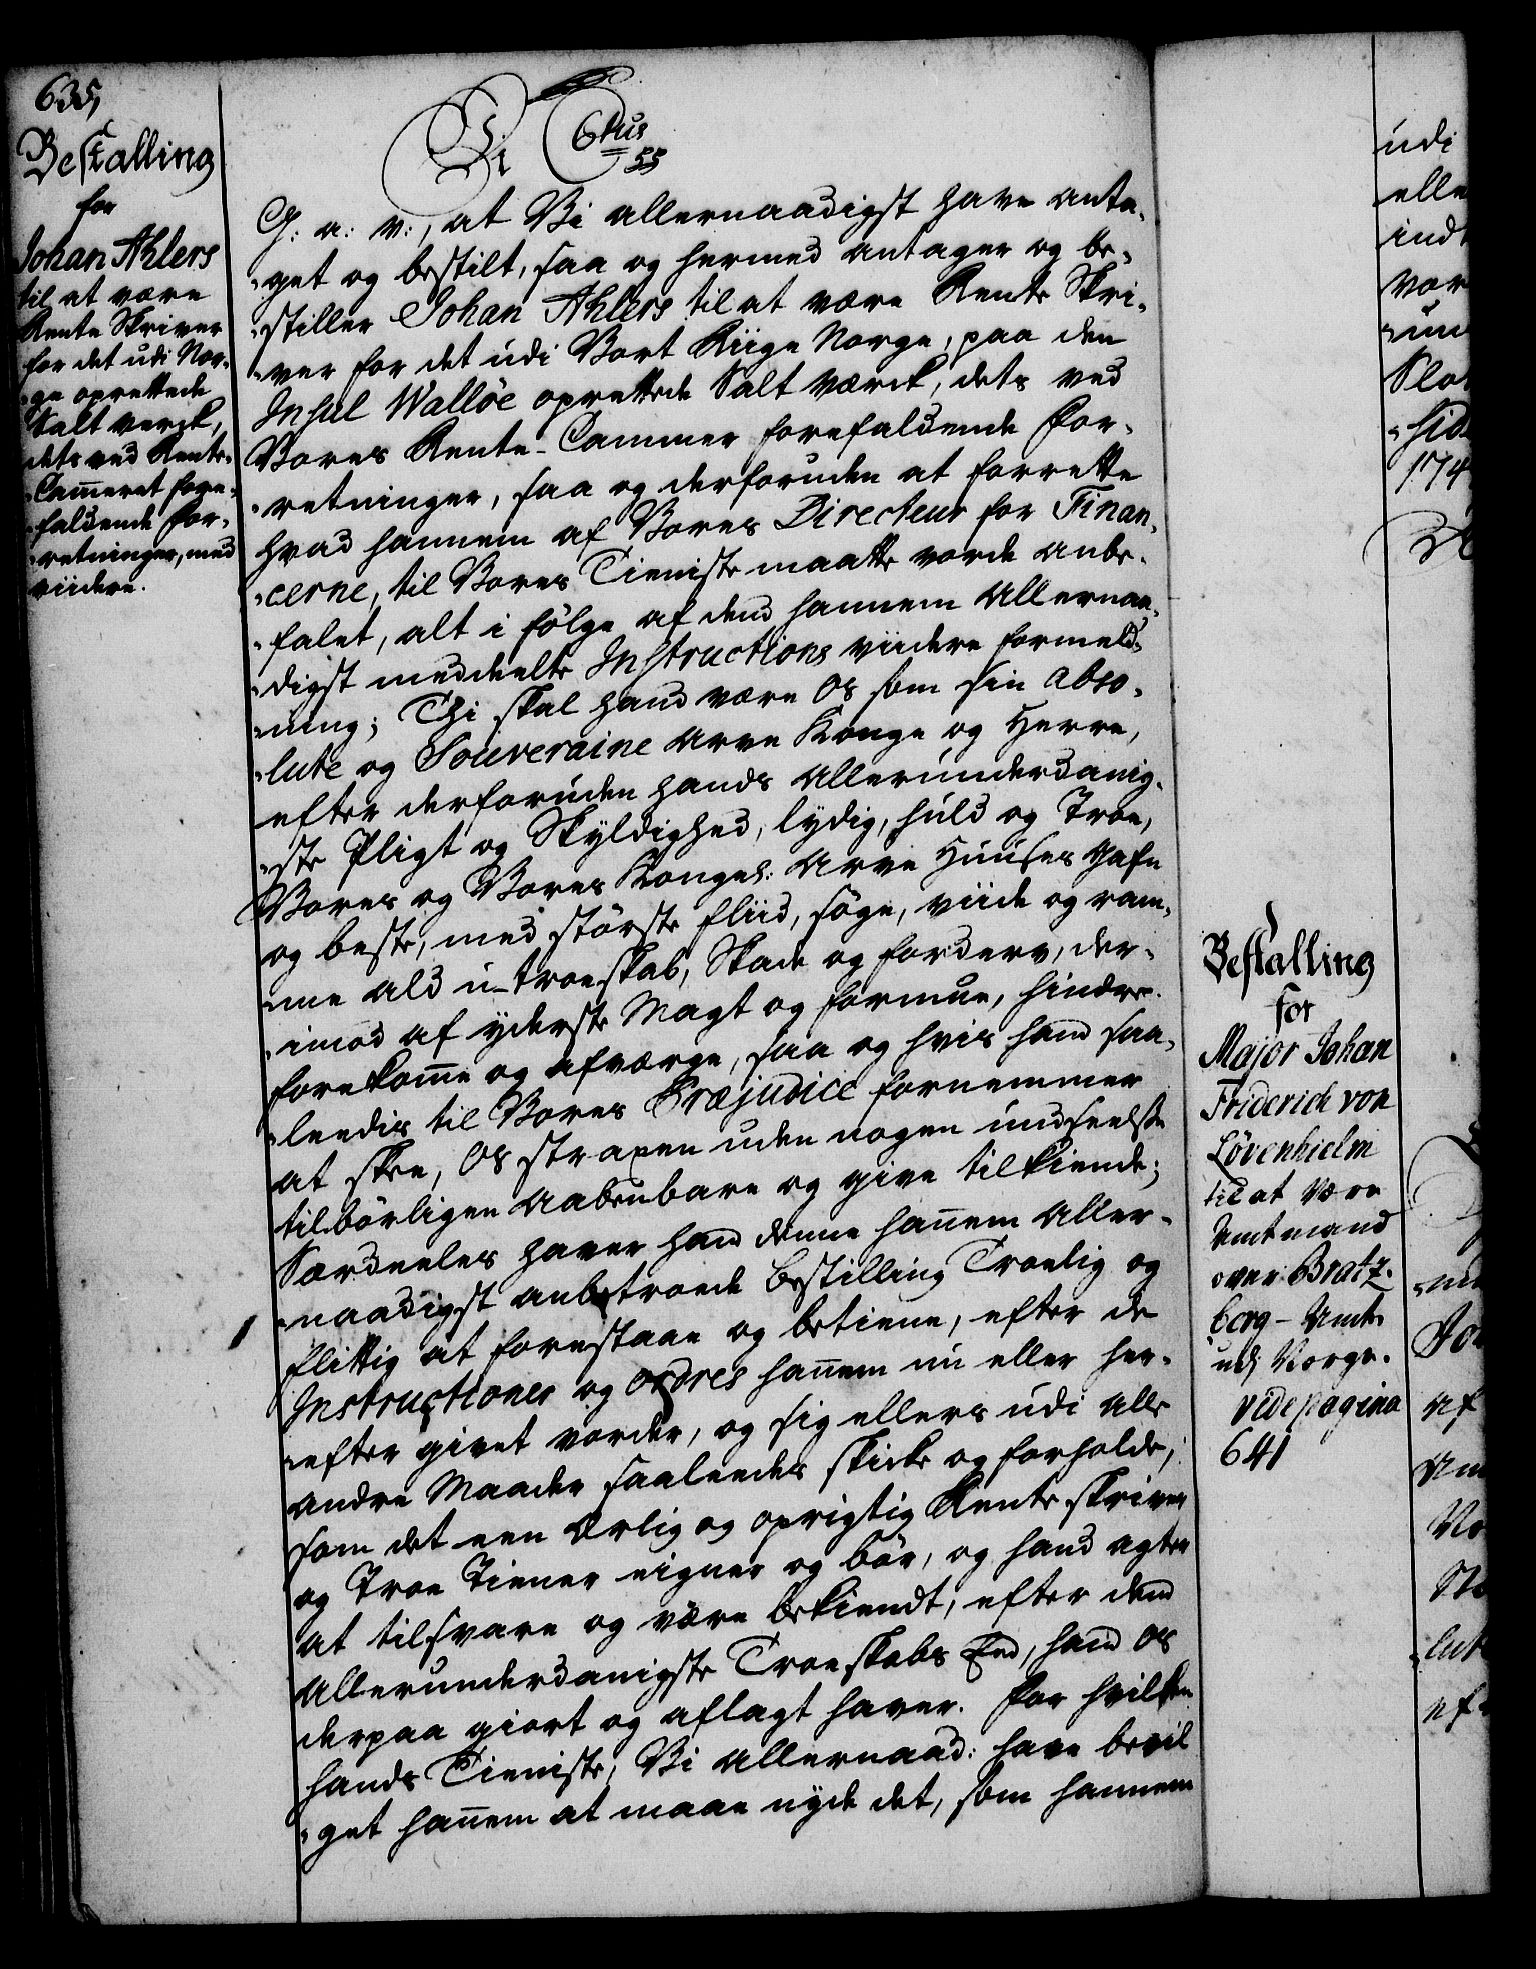 635,
Bestalling
for
Johan Ahlers
til at være
Rente Skriver
for det udi Nor-
ge oprettede
Salt verck,
dets ved Rente-
Cam̄eret fore-
faldende For-
retninger, med
viidere.
Vi C 6tus
55
G: a: v:, at Vi allernaadigst have anta-
get og bestilt, saa og hermed antager og be-
stiller Johan Ahlers til at være Rente Skri-
ver for det udi Vort Riige Norge, paa den
Insul Walløe oprettede Salt Værck, dets ved
Vores Rente-Cammer forefaldende For-
retninger, saa og derforuden at forrette
hvad hannem af Vores Directeur for Finan-
cerne, til Vores Tieniste maatte vorde anbe-
falet, alt i følge af dend hannem Allernaa-
digst meddeelte Instructions viidere formeld-
ning; Thi skal hand være Os som sin Abso-
lute og Souveraine Arve Konge og Herre,
efter derforuden hands Allerunderdanig-
ste Pligt og Skyldighed, lydig, huld og Troe,
Vores og Vores Kongel: Arve Huuses Gafn
og beste, med störste fliid, söge, viide og ram-
me ald u-troeskab, Skade og forderv, der-
imod af yderste Magt og formue, hindre
forekom̄e og afværge, saa og hvis hand saa-
leedis til Vores Præjudice fornemmer
at skee, Os straxen uden nogen undseelse
tilbörligen aabenbare og give tilkiende;
Særdeeles haver hand denne han̄em Aller-
naadigst anbetroede bestilling Troelig og
flittig at forestaae og betiene, efter de
Instructioner og ordres han̄em nu eller her-
efter givet vorder, og sig ellers udi alle
andre Maader saaleedes skicke og forholde,
som det een Ærlig og oprigtig Rente skriver
og Troe Tiener eigner og bör, og hand agter
at tilsvare og være bekiendt, efter dend
Allerunderdanigste Troeskabs Eed, hand Os
derpaa giort og aflagt haver. For hvilken
hands Tieniste, Vi Allernaad: have bevil
get han̄em at maae nyde det, som hannem
Bestalling
for
Major Johan
Friderich von
Lövenhielm
til at være
Amtmand
over Bratz-
berg-Amt
udi Norge.
vide pagina
641
udi
elle
ind
vor
Slo
174
Jo
af
lut